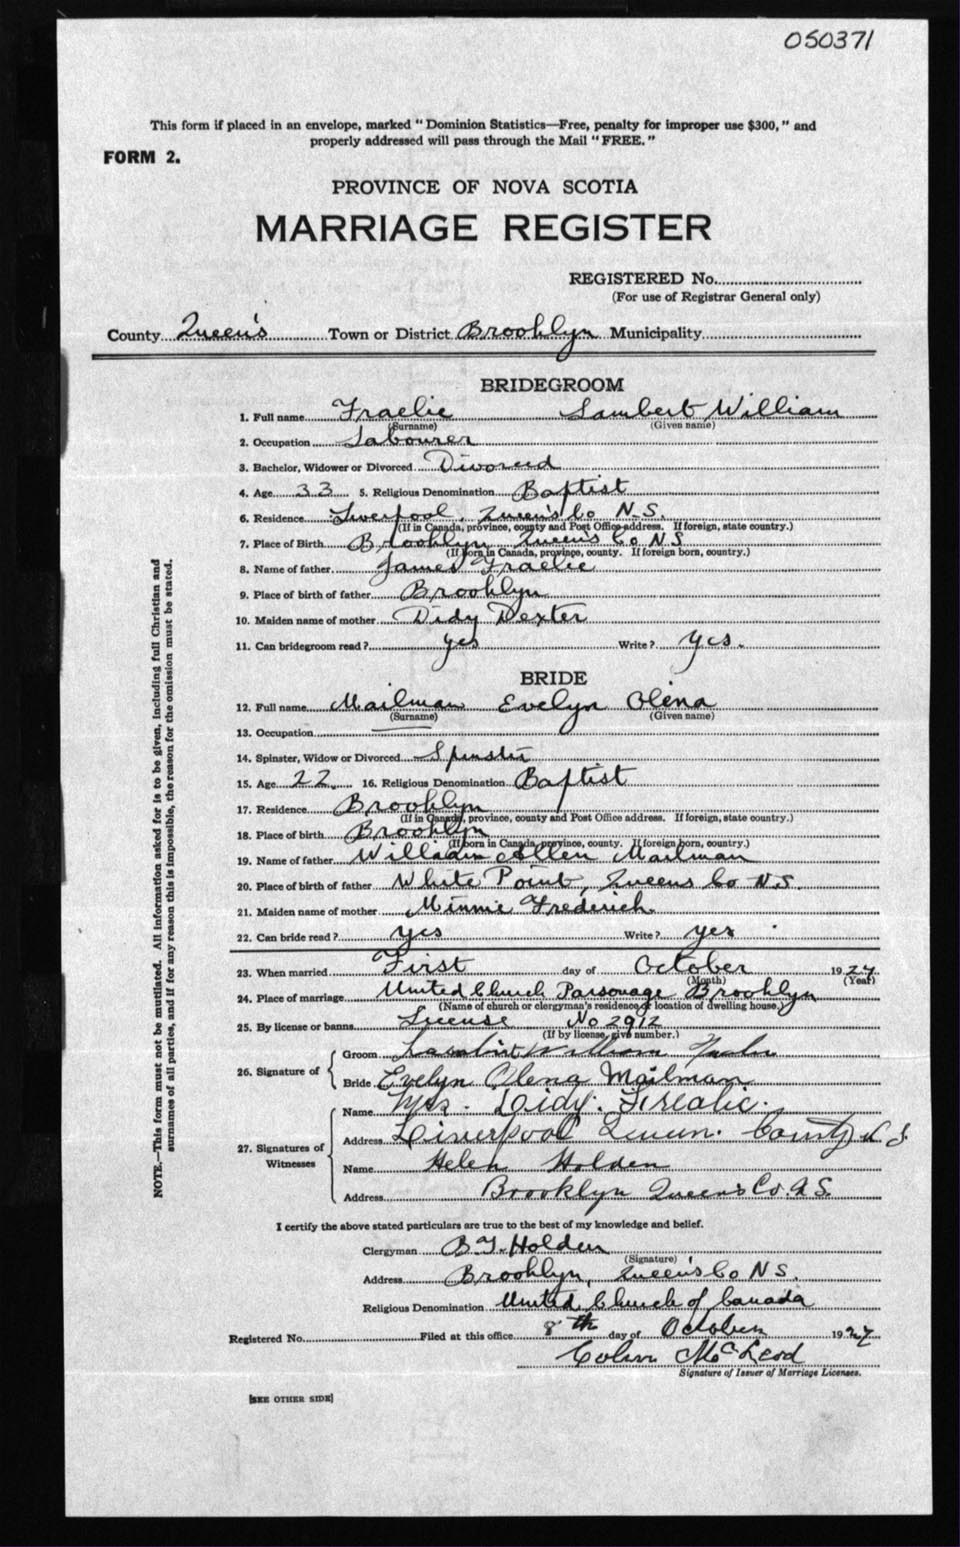 050371
This form if placed in an envelope, marked "Dominion Statistics—Free, penalty for improper use $300," and
properly addressed will pass through the Mail "FREE."
FORM 2.
PROVINCE OF NOVA SCOTIA
MARRIAGE REGISTER
REGISTERED No.
(For use of Registrar General only)
County Queen's Town or District Brooklyn Municipality
BRIDEGROOM
1. Full name Fraelic Lambert William
(Surname) (Given name)
2. Occupation Labourer
3. Bachelor, Widower or Divorced Divorced
4. Age 33 5. Religious Denomination Baptist
6. Residence Liverpool, Queen's Co N.S.
(If in Canada, province, county and Post Office address. If foreign, state country.)
7. Place of Birth Brooklyn Queens Co NS
(If born in Canada, province, county. If foreign born, country.)
8. Name of father James Fraelic
9. Place of birth of father Brooklyn
10. Maiden name of mother Didy Dexter
11. Can bridegroom read? yes Write? yes.
BRIDE
12. Full name Mailman Evelyn Olena
(Surname) (Given name)
13. Occupation
14. Spinster, Widow or Divorced Spinster
15. Age 22 16. Religious Denomination Baptist
17. Residence Brooklyn
(If in Canada, province, county and Post Office address. If foreign, state country.)
18. Place of birth Brooklyn
(If born in Canada, province, county. If foreign born, country.)
19. Name of father William Allen Mailman
20. Place of birth of father White Point, Queens Co N.S.
21. Maiden name of mother Minnie Frederick
22. Can bride read? yes Write? yes
23. When married First day of October 1927
(Month) (Year)
24. Place of marriage United Church Parsonage Brooklyn
(Name of church or clergyman's residence or location of dwelling house.)
25. By license or banns License No 2912
(If by license, give number.)
26. Signature of
Groom Lambert William
Bride Evelyn Olena Mailman
27. Signatures of Witnesses
Name Mrs. Didy. Frealic.
Address Liverpool Queen. County N S
Name Helen Holden
Address Brooklyn Queen's Co. N.S.
I certify the above stated particulars are true to the best of my knowledge and belief.
Clergyman B.J. Holden
(Signature)
Address Brooklyn, Queen's Co N S.
Religious Denomination United Church of Canada
Registered No. Filed at this office 8th day of October 1927
Colin McLeod
Signature of Issuer of Marriage Licenses.
[SEE OTHER SIDE]
NOTE.—This form must not be mutilated. All information asked for is to be given, including full Christian and
surnames of all parties, and if for any reason this is impossible, the reason for the omission must be stated.